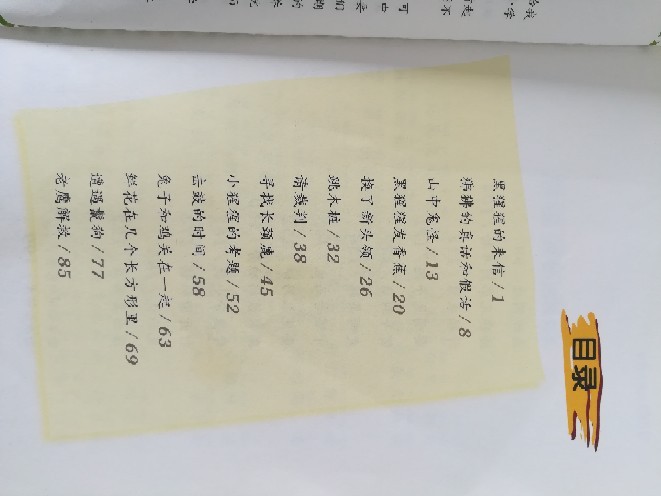 目录
黑猩猩的来信/1
狒狒的真话和假话/8
山中鬼怪/13
黑猩猩发香蕉/20
换了新头领/26
跳木桩/32
请裁判/38
寻找长颈鹿/45
小猩猩的考题/52
击鼓的时间/58
兔子和鸡关在一起/63
鲜花在几个长方形里/69
遭遇鬣狗/77
老鹰解救/85